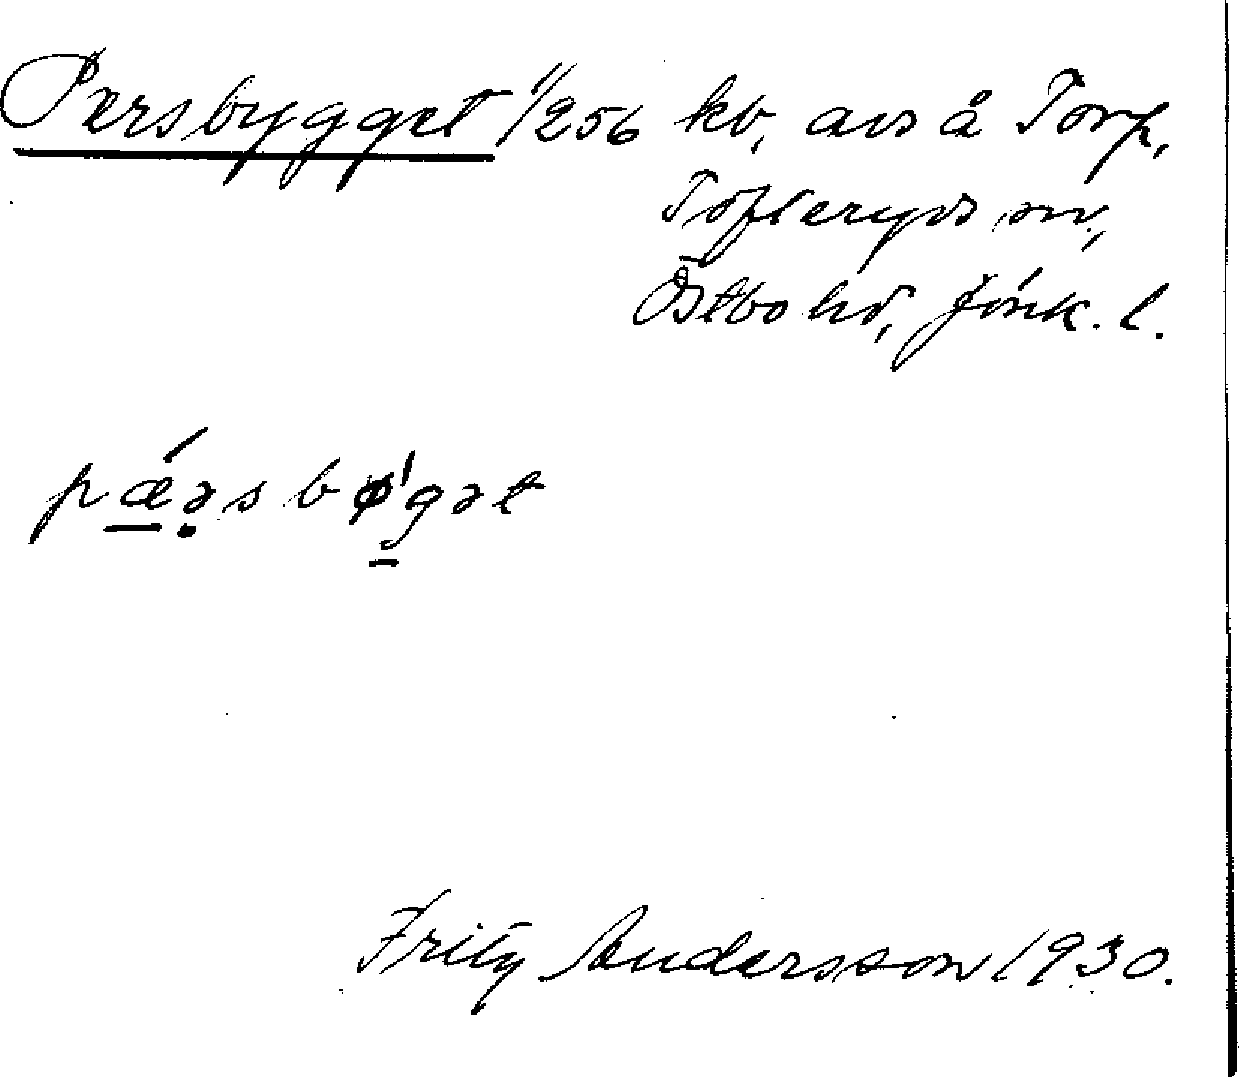 Persbygget 1/256 kb, avs å Torp,
Tofteryds sn,
Östbo hd, Jönk. l.
pǽəsbø'gət
Fritz Andersson 1930.